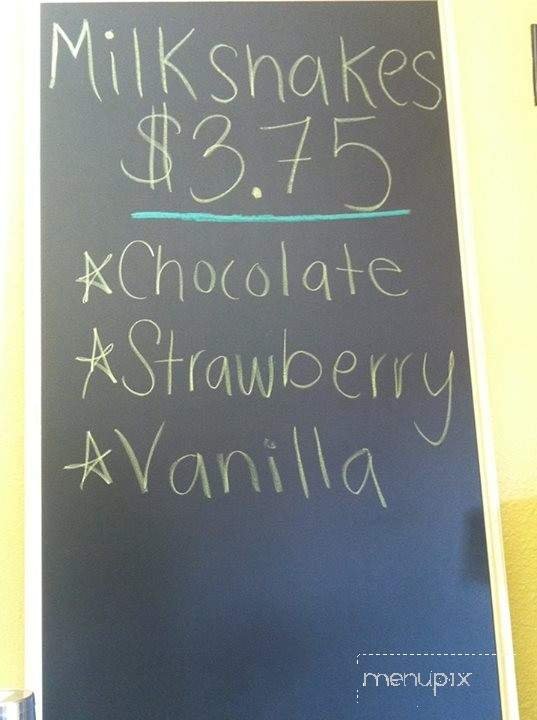 Milkshakes
$3.75
☆Chocolate
☆Strawberry
☆Vanilla
menupix